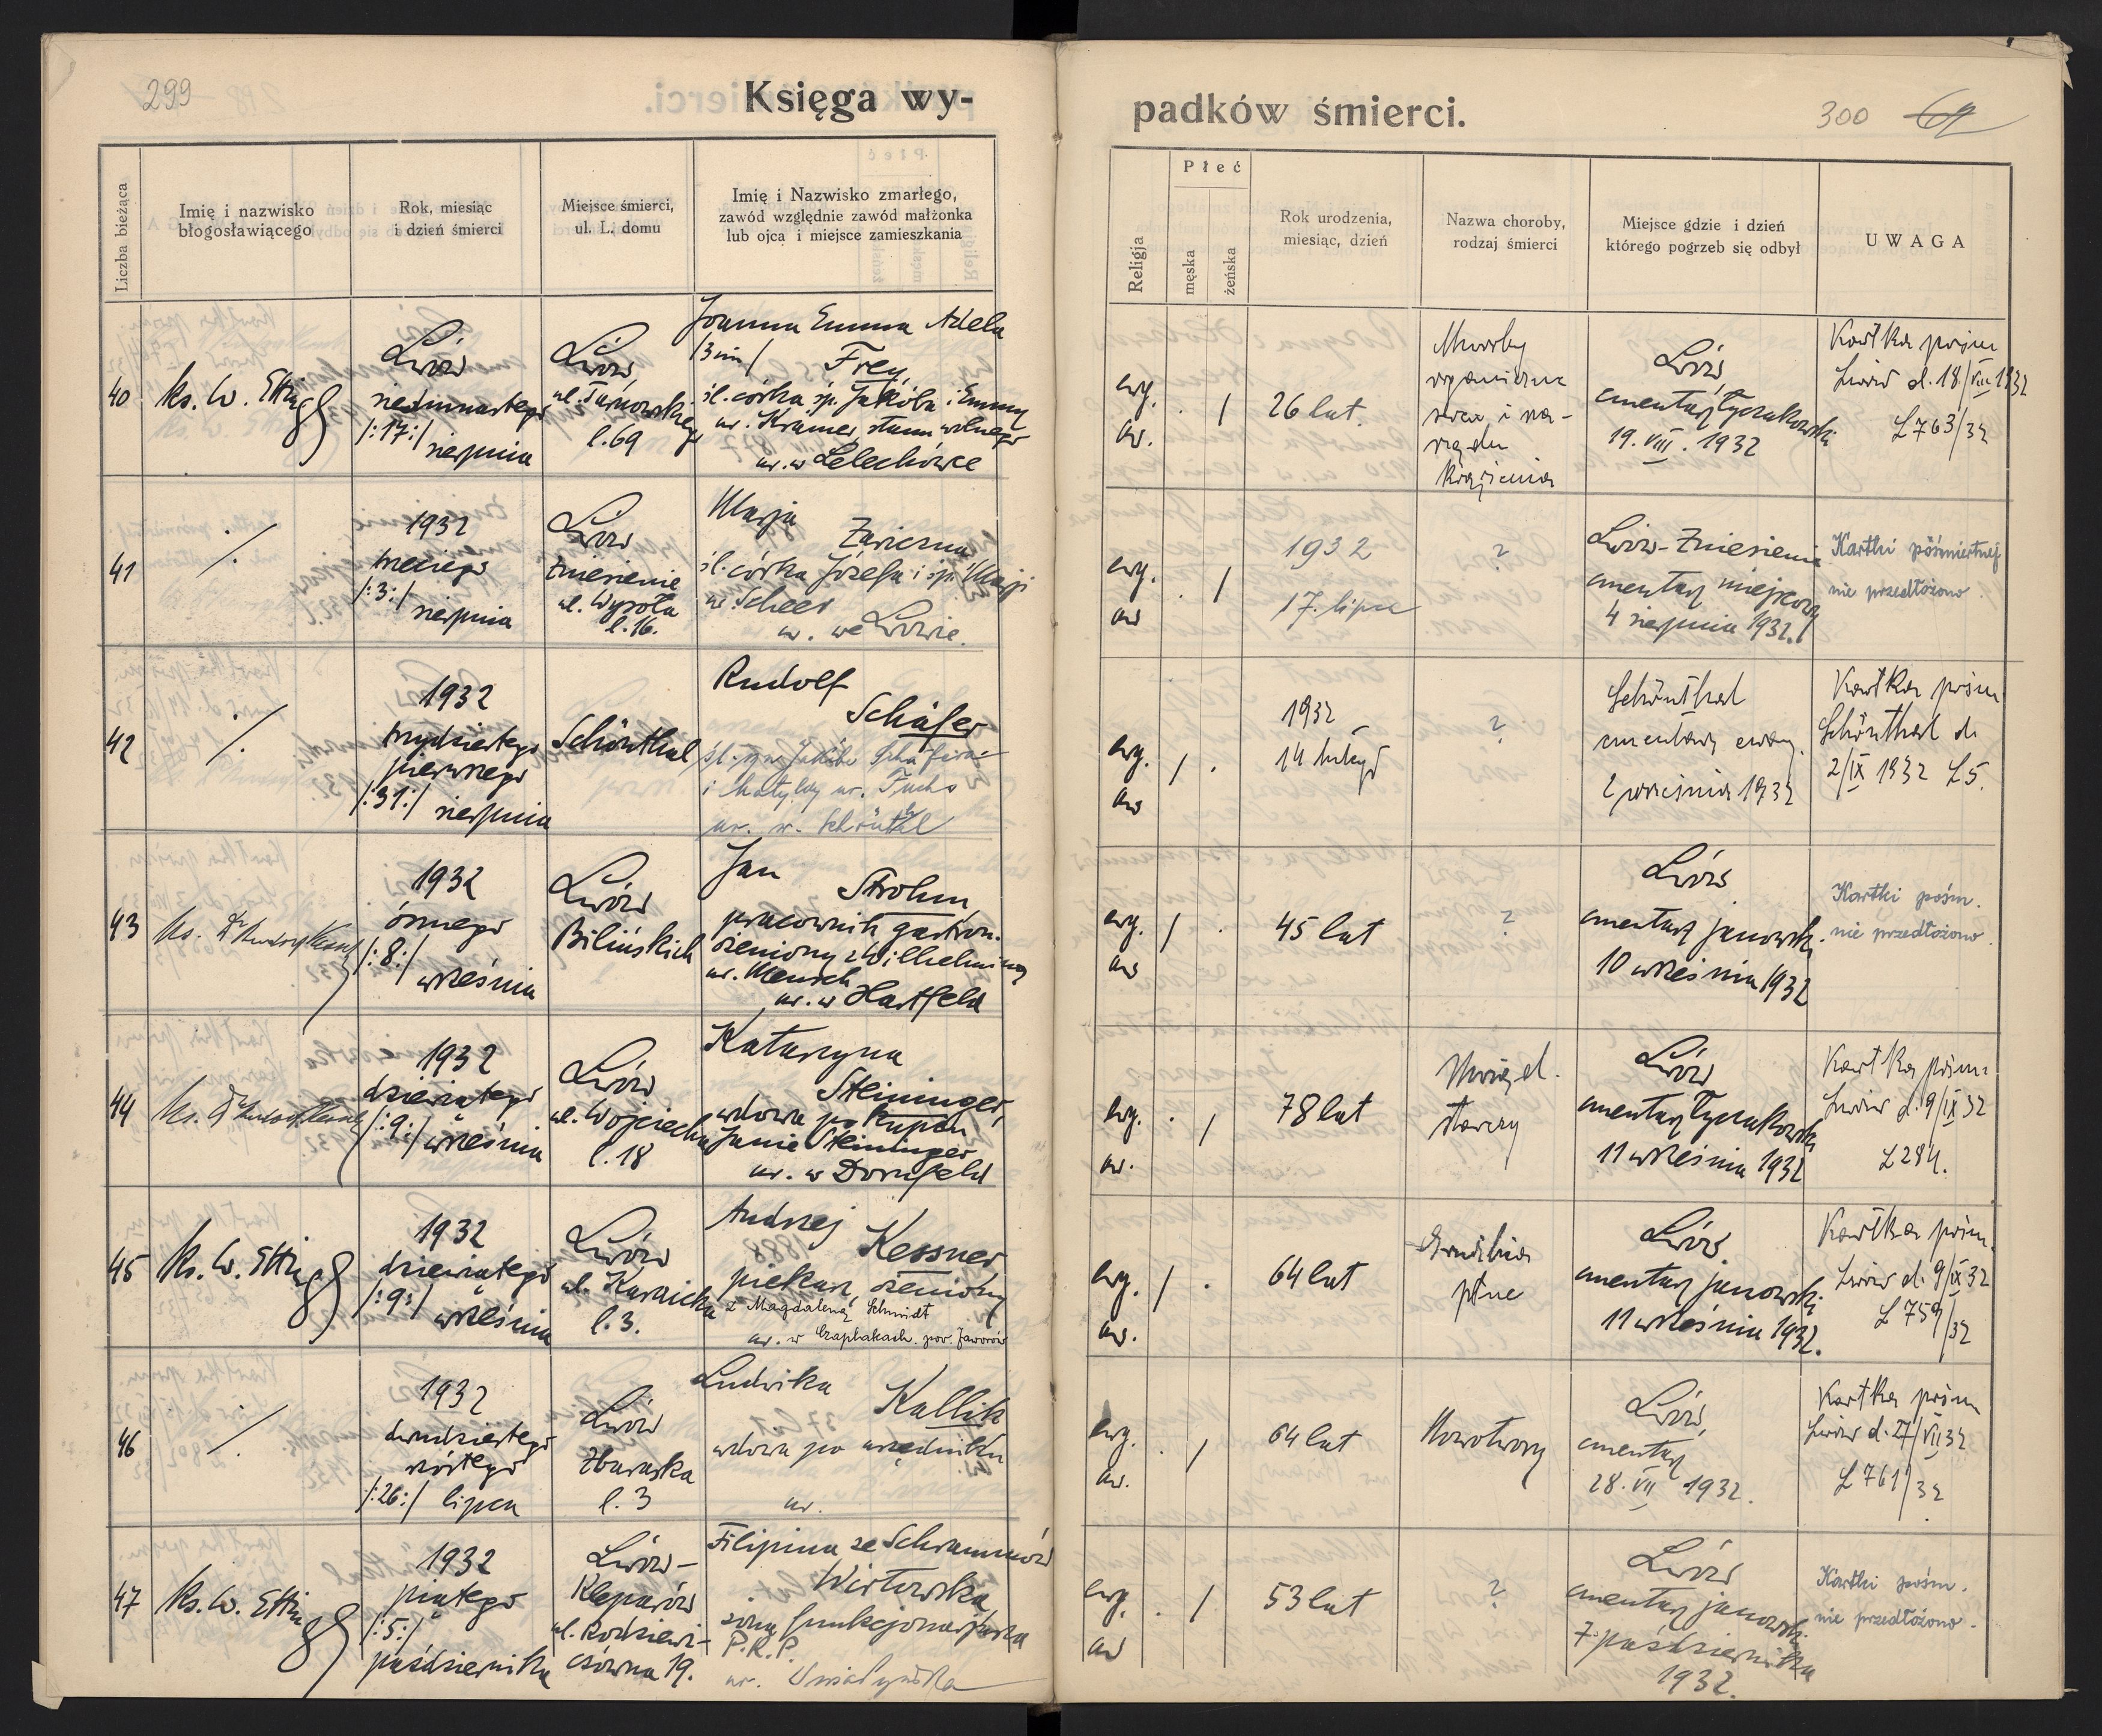 299
Księga wy-
padków śmierci.
300
Liczba bieżąca
Imię i nazwisko
błogosławiącego
Rok, miesiąc
i dzień śmierci
Miejsce śmierci,
ul. L. domu
Imię i Nazwisko zmarłego,
zawód względnie zawód małżonka
lub ojca i miejsce zamieszkania
Religja
Płeć
męska
żeńska
Rok urodzenia,
miesiąc, dzień
Nazwa choroby,
rodzaj śmierci
Miejsce gdzie i dzień
którego pogrzeb się odbył
UWAGA
40
ks. W.
Lwów
siedmnastego
/:17:/ sierpnia
Lwów
l.69
Joanna Emma Adela
/3 im/ Frey,
śl. córka śp. Jakóba i Emmy
ur. Kramer, stanu wolnego
ur. w Lelechówce
ewg.
aw.
/
26 lat.
Choroby
organiczne
serca i na-
rządu
krążenia
Lwów
cmentarz Łyczakowski
19. VIII. 1932
Kartka pośm
Lwów d. 18/VIII 1932
L 763/32
41
/.
1932
trzeciego
/:3:/ sierpnia
Lwów
Zniesienie
ul. Wysoka
l. 16.
Marja
śl. córka Józefa i śp. Marji
ur. Scheer
ur. we Lwowie.
ewg.
aw
/
1932
17. lipca
?
Lwów-Zniesienie
cmentarz miejscowy
4 sierpnia 1932.
Kartki pośmiertnej
nie przedłożono.
42
/.
1932
trzydziestego
pierwszego
/:31:/ sierpnia
Schönthal
Rudolf
Schäfer
śl. syn Jakóba Schäfera
i Matyldy ur. Fuchs
ur. w. Schöntal
ewg.
aw
/
1932
14 lutego
?
Schönthal
cmentarz ewang.
2 września 1932
Kartka pośm.
Schönthal d.
2/IX 1932 L 5.
43
ks. Dr
1932
ósmego
/:8:/
września
Lwów
Bilińskich
Jan
Strohm,
pracownik gastron.
żeniony z Wilhelminą
ur. Mensch
ur. w Hartfeld
ewg.
aw
/
45 lat
?
Lwów
cmentarz janowski.
10 września 1932
Kartki pośm.
nie przedłożono.
44
ks. Dr
1932
dziewiątego
/:9:/ września
Lwów
ul. Wojciecha
l. 18
Katarzyna
Steininger,
wdowa po kupcu
Janie Steininger
ur. w Dornfeld
ewg.
aw.
/
78 lat
Uwiąd.
starczy
Lwów
cmentarz Łyczakowski
11 września 1932
Kartka pośm.
Lwów d. 9/IX 32
L 284.
45
ks. W.
1932
dziewiątego
/:9:/
września
Lwów
l. 3.
Andrzej
Kessner
piekarz, żeniony
z Magdaleną Schmidt
ur. w Czaplakach. pow. Jaworów
ewg.
aw.
/
64 lat
Gruźlica
płuc
Lwów
cmentarz janowski
11 września 1932.
Kartka pośm.
Lwów d. 9/IX 32
L 759/32
46
/.
1932
dwudziestego
szóstego
/:26:/ lipca
Lwów
Zbaraska
l. 3
Ludwika
Kallik
wdowa po urzędniku
ur.
ewg.
aw.
/
64 lat
Nowotwory
Lwów
cmentarz
28. VII 1932.
Kartka pośm
Lwów d. 27/VII 32
L 761/32
47
ks. W.
1932
piątego
/:5:/
października
Lwów-
Kleparów
ul. Rodziewi-
czówna 19.
Filipina ze Schrammów
żona funkcjonarjusza
P.K.P.
ur.
ewg.
aw
/
53 lat
?
Lwów
cmentarz janowski
7 października
1932.
Kartki pośm.
nie przedłożono.